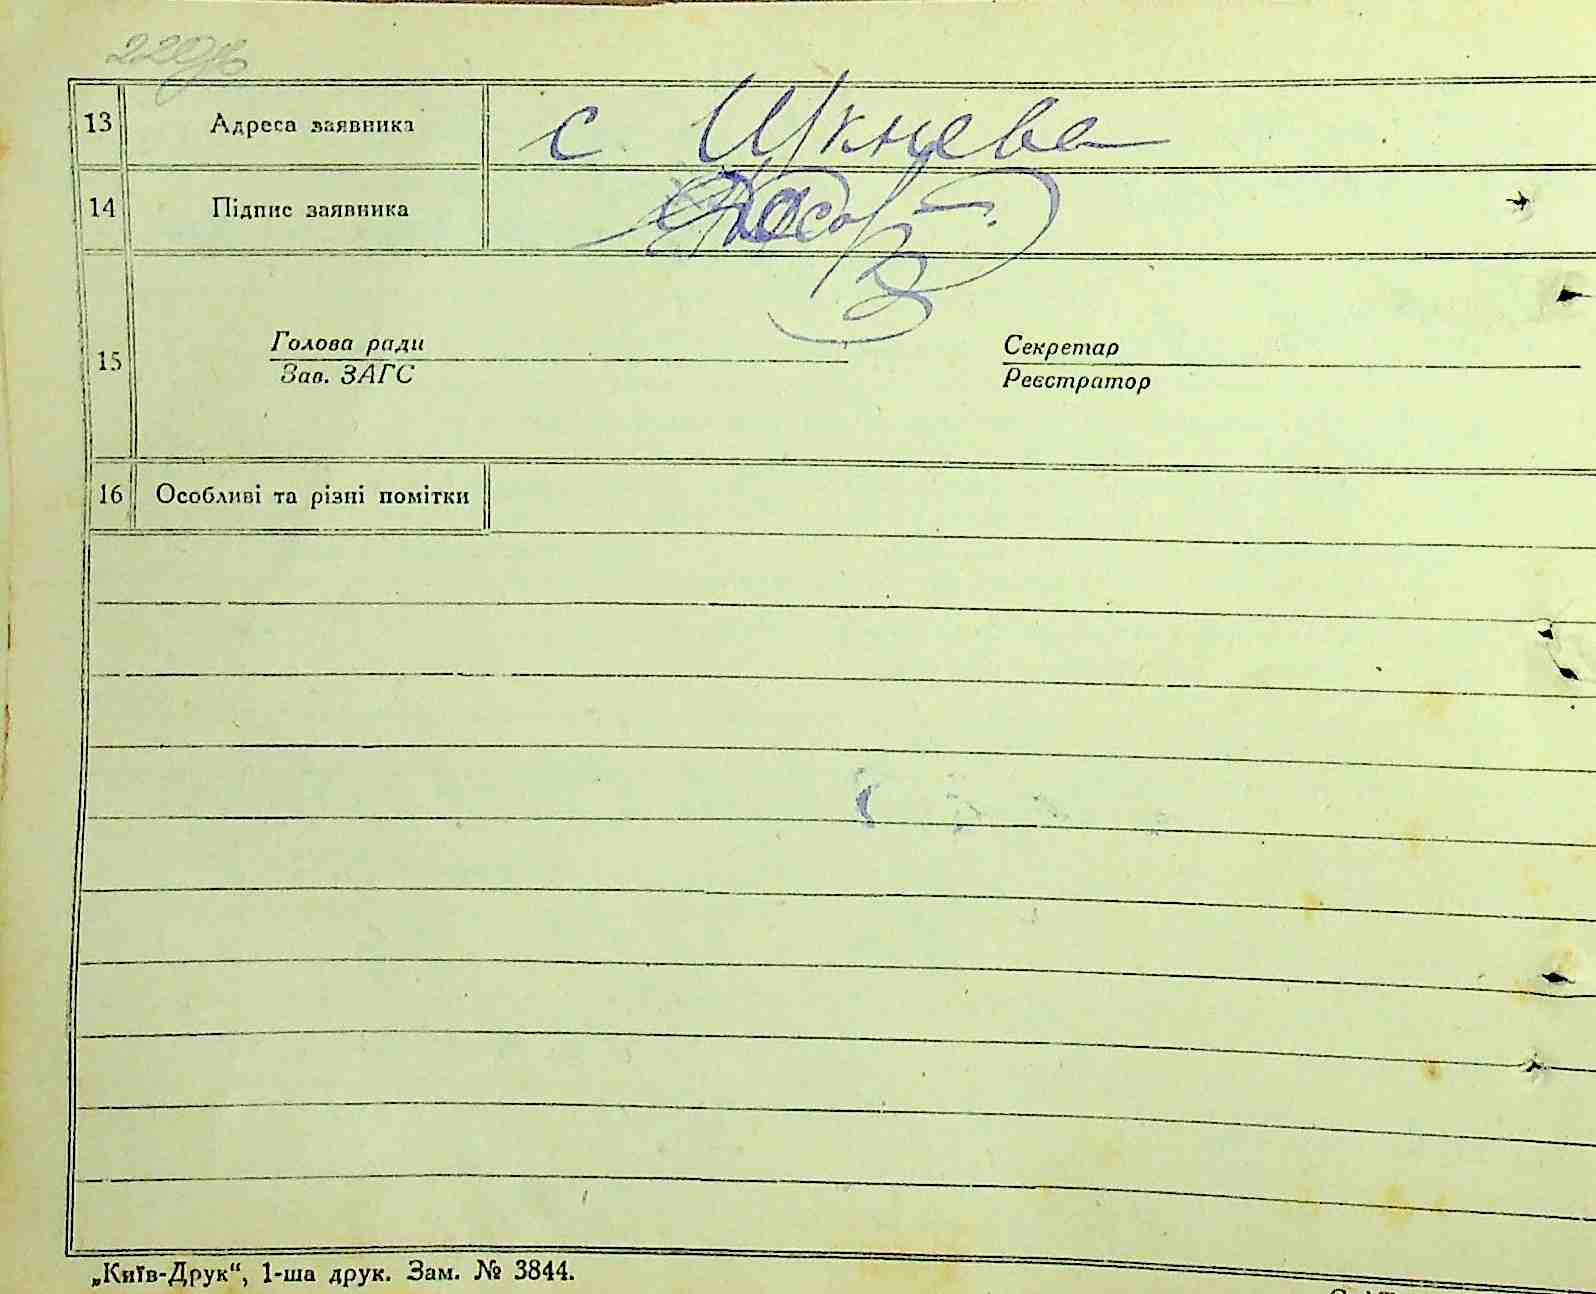 13 Адреса заявника с
14 Підпис заявника
15 Голова ради Секретар
Зав. ЗАГС Реєстратор
16 Особливі та різні помітки
„Київ-Друк“, 1-ша друк. Зам. № 3844.